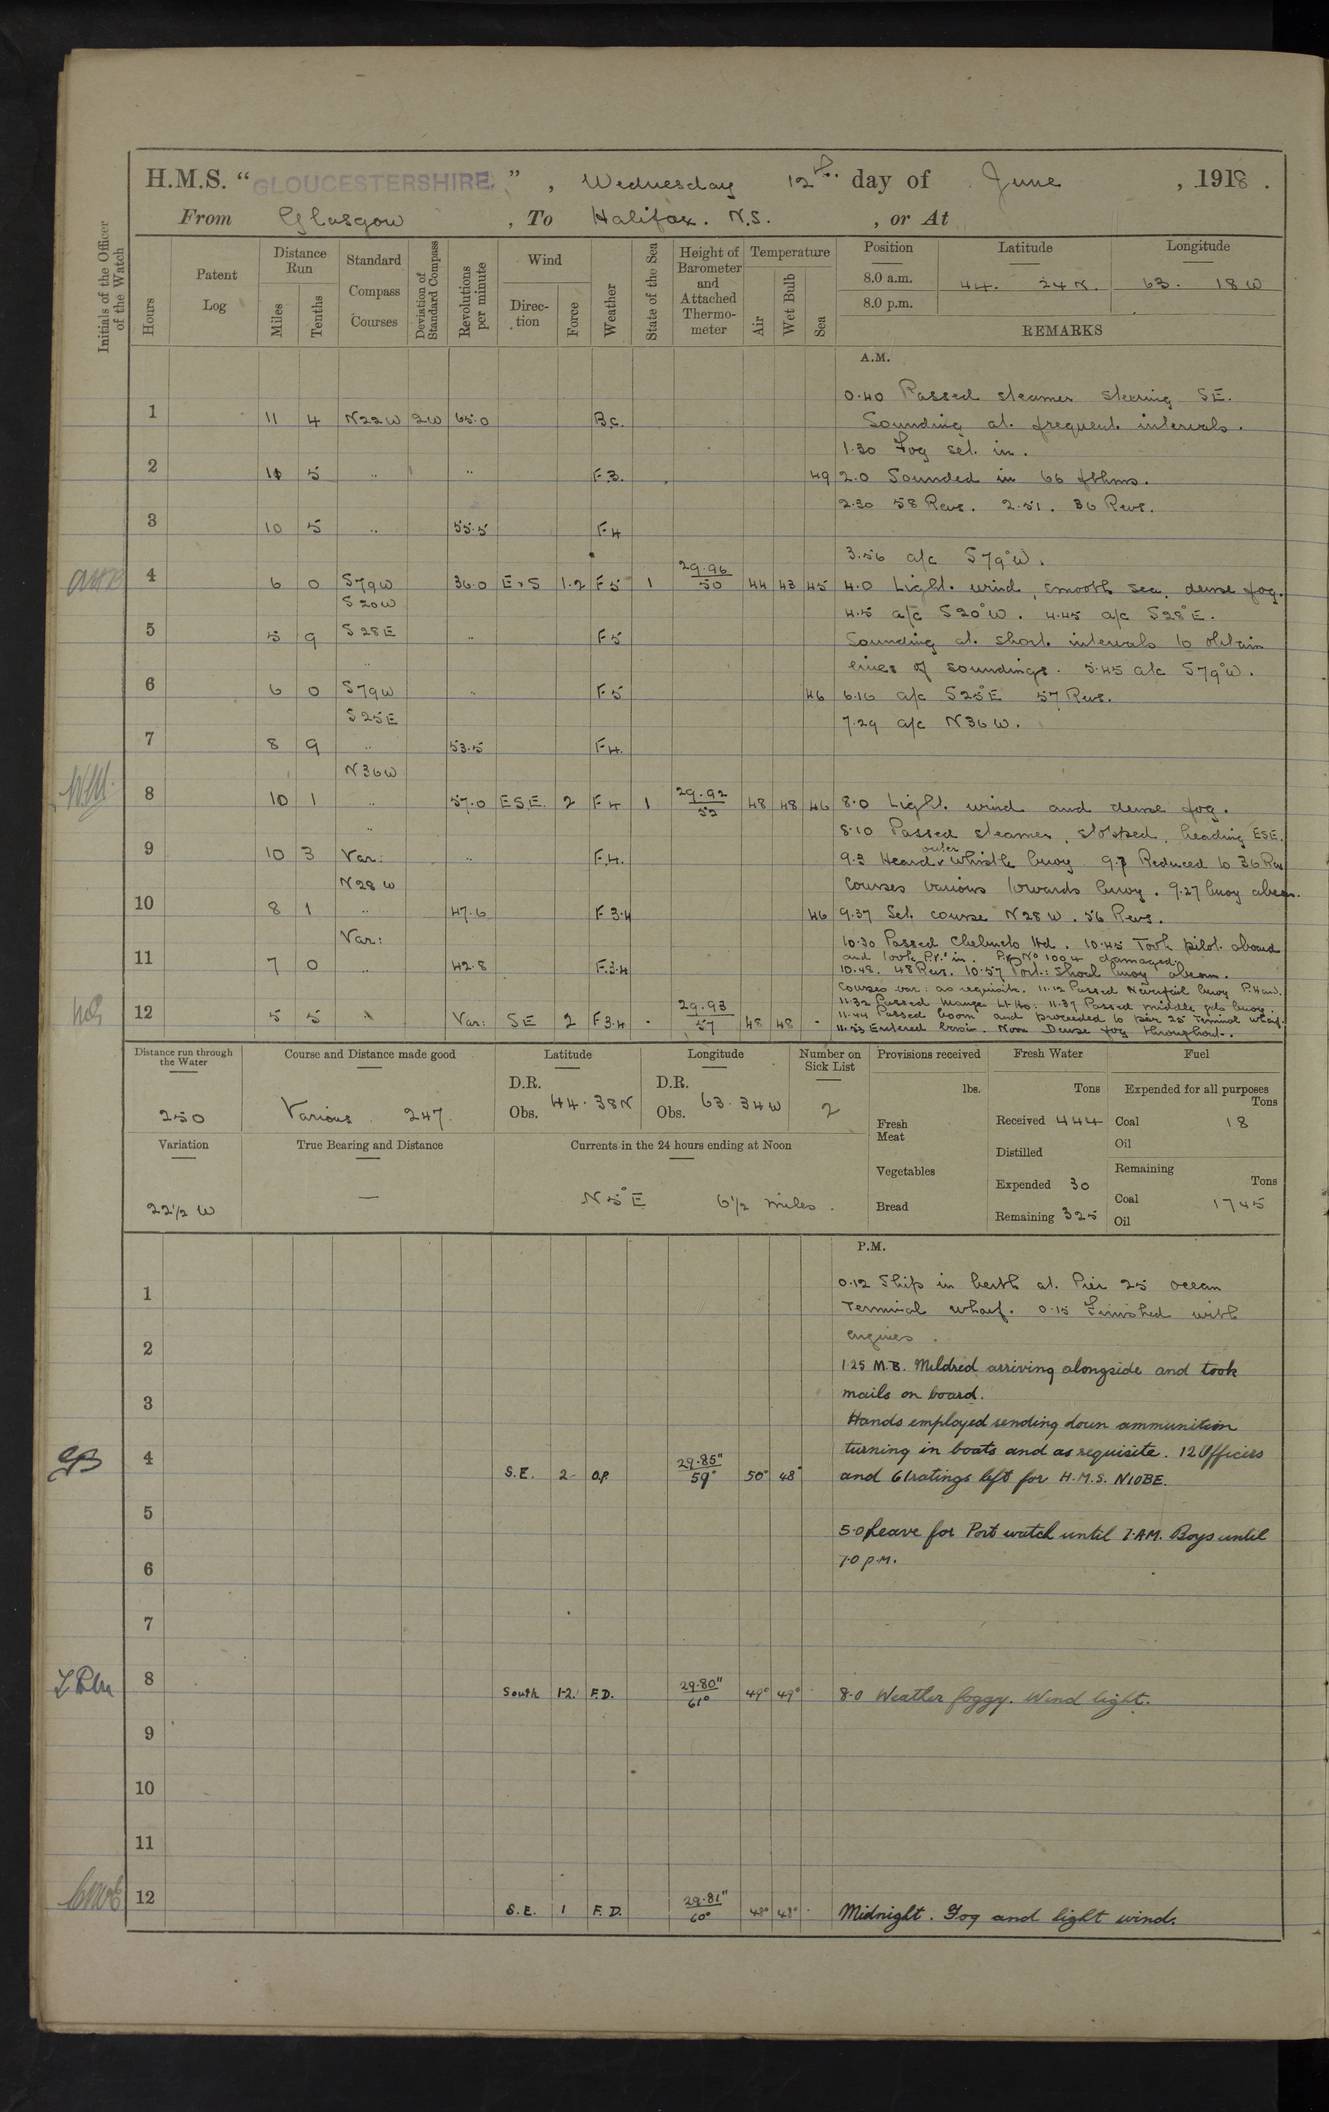 H.M.S. “GLOUCESTERSHIRE”, Wednesday 12th day of June, 1918.
From Glasgow, To Halifax. N.S., or At
Initials of the Officer of the Watch
Hours
Patent Log
Distance Run
Miles
Tenths
Standard Compass Courses
Deviation of Standard Compass
Revolutions per minute
Wind
Direction
Force
Weather
State of the Sea
Height of Barometer and Attached Thermometer
Temperature
Air
Wet Bulb
Sea
Position Latitude Longitude
8.0 a.m. 44. 24 N. 63. 18 W
8.0 p.m.
REMARKS
A.M.
0.40 Passed steamer steering SE.
1 11 4 N22W 2W 65.0 B.C. Sounding at frequent intervals.
1.30 Fog set in.
2 11 5 " " F.3. 49 2.0 Sounded in 66 fthms.
2.30 58 Revs. 2.51. 36 Revs.
3 10 5 " 55.5 F.4
3.56 a/c S79°W.
4 6 0 S79W 36.0 ExS 1.2 F5 1 29.96 50 44 43 45 4.0 Light wind, smooth sea, dense fog.
S20W 4.5 a/c S20°W. 4.45 a/c S28°E.
5 5 9 S28E " F5 Sounding at short intervals to obtain
" lines of soundings. 5.45 a/c S79°W.
6 6 0 S79W " F5 46 6.16 a/c S25°E 57 Revs.
S25E 7.29 a/c N36W.
7 8 9 " 53.5 F4.
N36W
8 10 1 " 57.0 ESE. 2 F4 1 29.92 52 48 48 46 8.0 Light wind and dense fog.
" 8.10 Passed steamer, stopped, heading ESE.
9 10 3 Var: " F.4. 9.3 Heard outer whistle buoy 9.7 Reduced to 36 Rev
N28W Courses various towards buoy. 9.27 buoy abeam.
10 8 1 " 47.6 F3.4 46 9.37 Set course N28W. 56 Revs.
Var: 10.30 Passed Chebucto Hd. 10.45 Took pilot aboard
and took P.V.s in. P.V. No 1004 damaged.
11 7 0 " 42.8 F.3.4 10.48. 48 Revs. 10.57 Port: shoal buoy abeam.
Courses var: as requisite. 11.12 Passed buoy P. Hand.
11.32 Passed Lt Ho: 11.37 Passed middle buoy.
12 5 5 " Var: SE 2 F3.4 - 29.93 57 48 48 - 11.44 Passed boom and proceeded to pier 25 Terminal wharf.
11.53 Entered basin. Noon Dense fog throughout.
Distance run through the Water
250
Course and Distance made good
Various 247.
Latitude
D.R.
Obs. 44.38N
Longitude
D.R.
Obs. 63.34W
Number on Sick List
2
Provisions received
lbs.
Fresh Meat
Vegetables
Bread
Fresh Water
Tons
Received 444
Distilled
Expended 30
Remaining 325
Fuel
Expended for all purposes
Tons
Coal 18
Oil
Remaining
Tons
Coal 1745
Oil
Variation
22½ W
True Bearing and Distance
—
Currents in the 24 hours ending at Noon
N5°E 6½ miles.
P.M.
0.12 Ship in berth at Pier 25 Ocean
1 Terminal wharf. 0.15 Finished with
engines.
2 1.25 M.B. Mildred arriving alongside and took
3 mails on board.
Hands employed sending down ammunition
turning in boats and as requisite. 12 Officers
4 S.E. 2 O.P. 29.85" 59° 50° 48° and 61 ratings left for H.M.S. NIOBE.
5 5.0 Leave for Port watch until 7.AM. Boys until
6 7.0 p.m.
7
8 South 1-2. F.D. 29.80" 61° 49° 49° 8.0 Weather foggy. Wind light.
9
10
11
12 S.E. 1 F.D. 29.81" 60° 48° 48° Midnight. Fog and light wind.